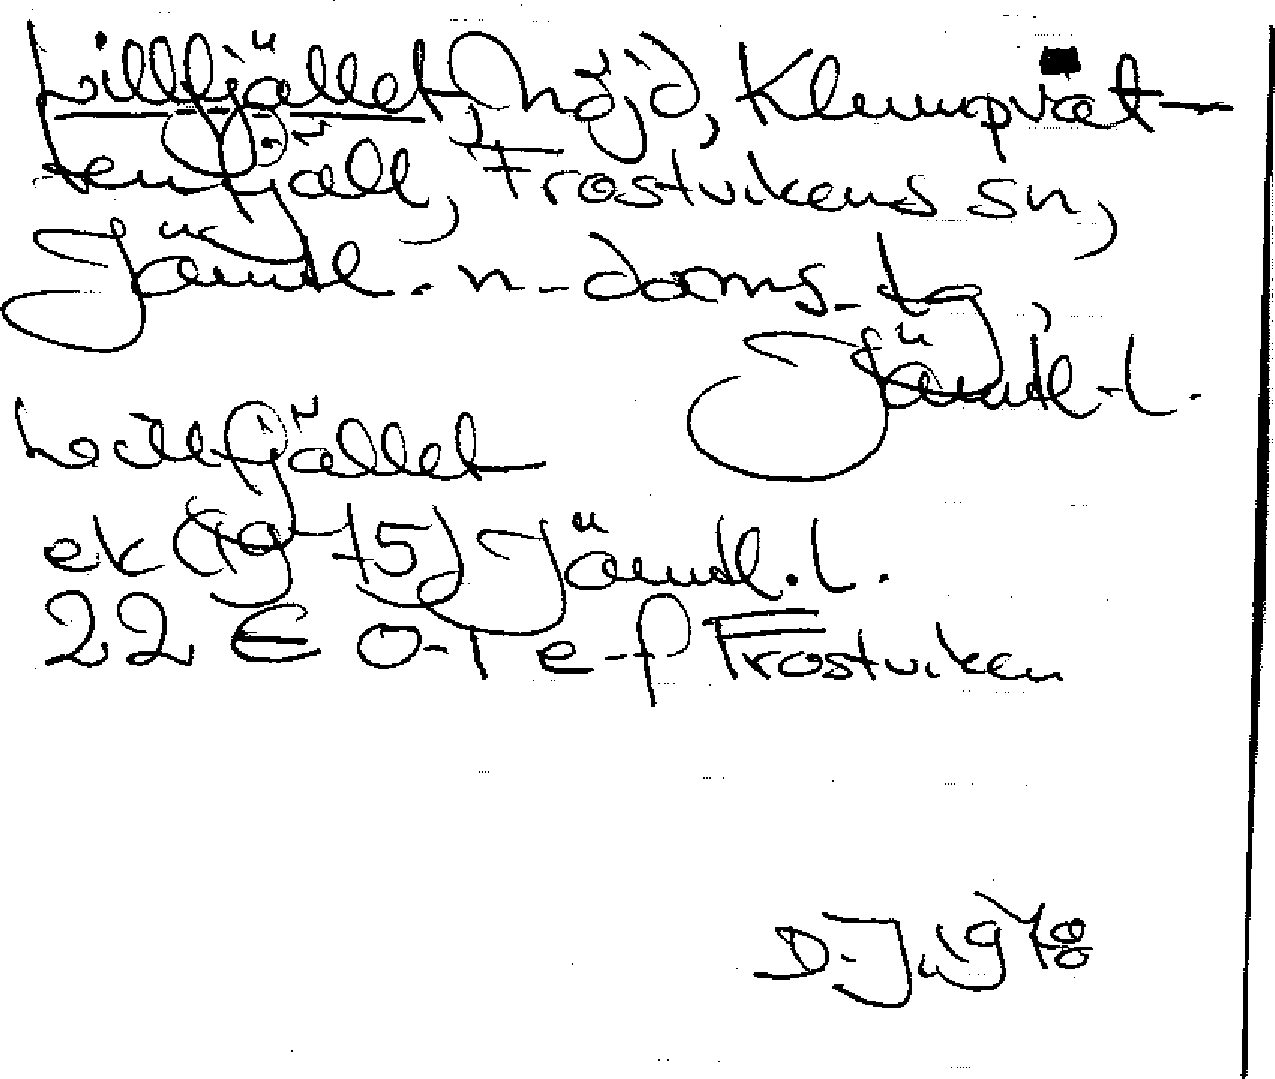 Lillfjället, höjd, Klumpvat-
tenfjäll, Frostvikens sn,
Jämtl. n. doms. tg,
Jämtl. l.
Lillfjället
ek (1975) Jämtl. l.
22 E 0-1 e-f Frostviken
D. J. 1978